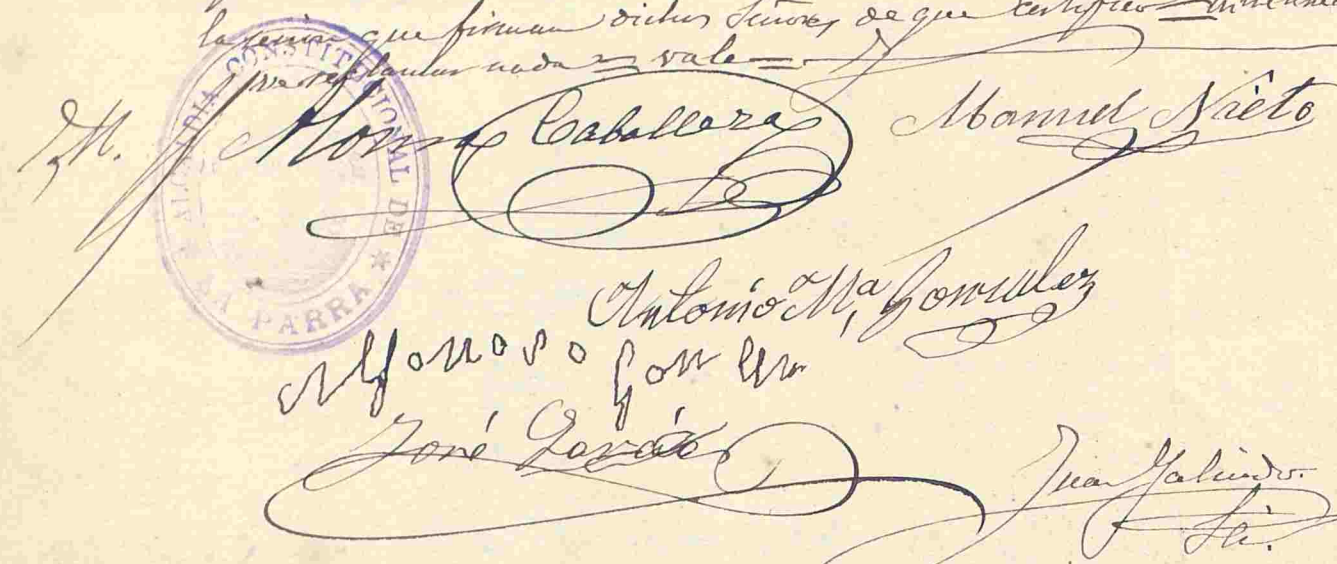 que firman dichos Señores de que certifico =
nada = vale =
ALCALDIA CONSTITUCIONAL DE
* LA PARRA *
Alonso Caballero
Manuel Nieto
Antonio Mª Gonzalez
Alfonso
José García
Juan Galindo.